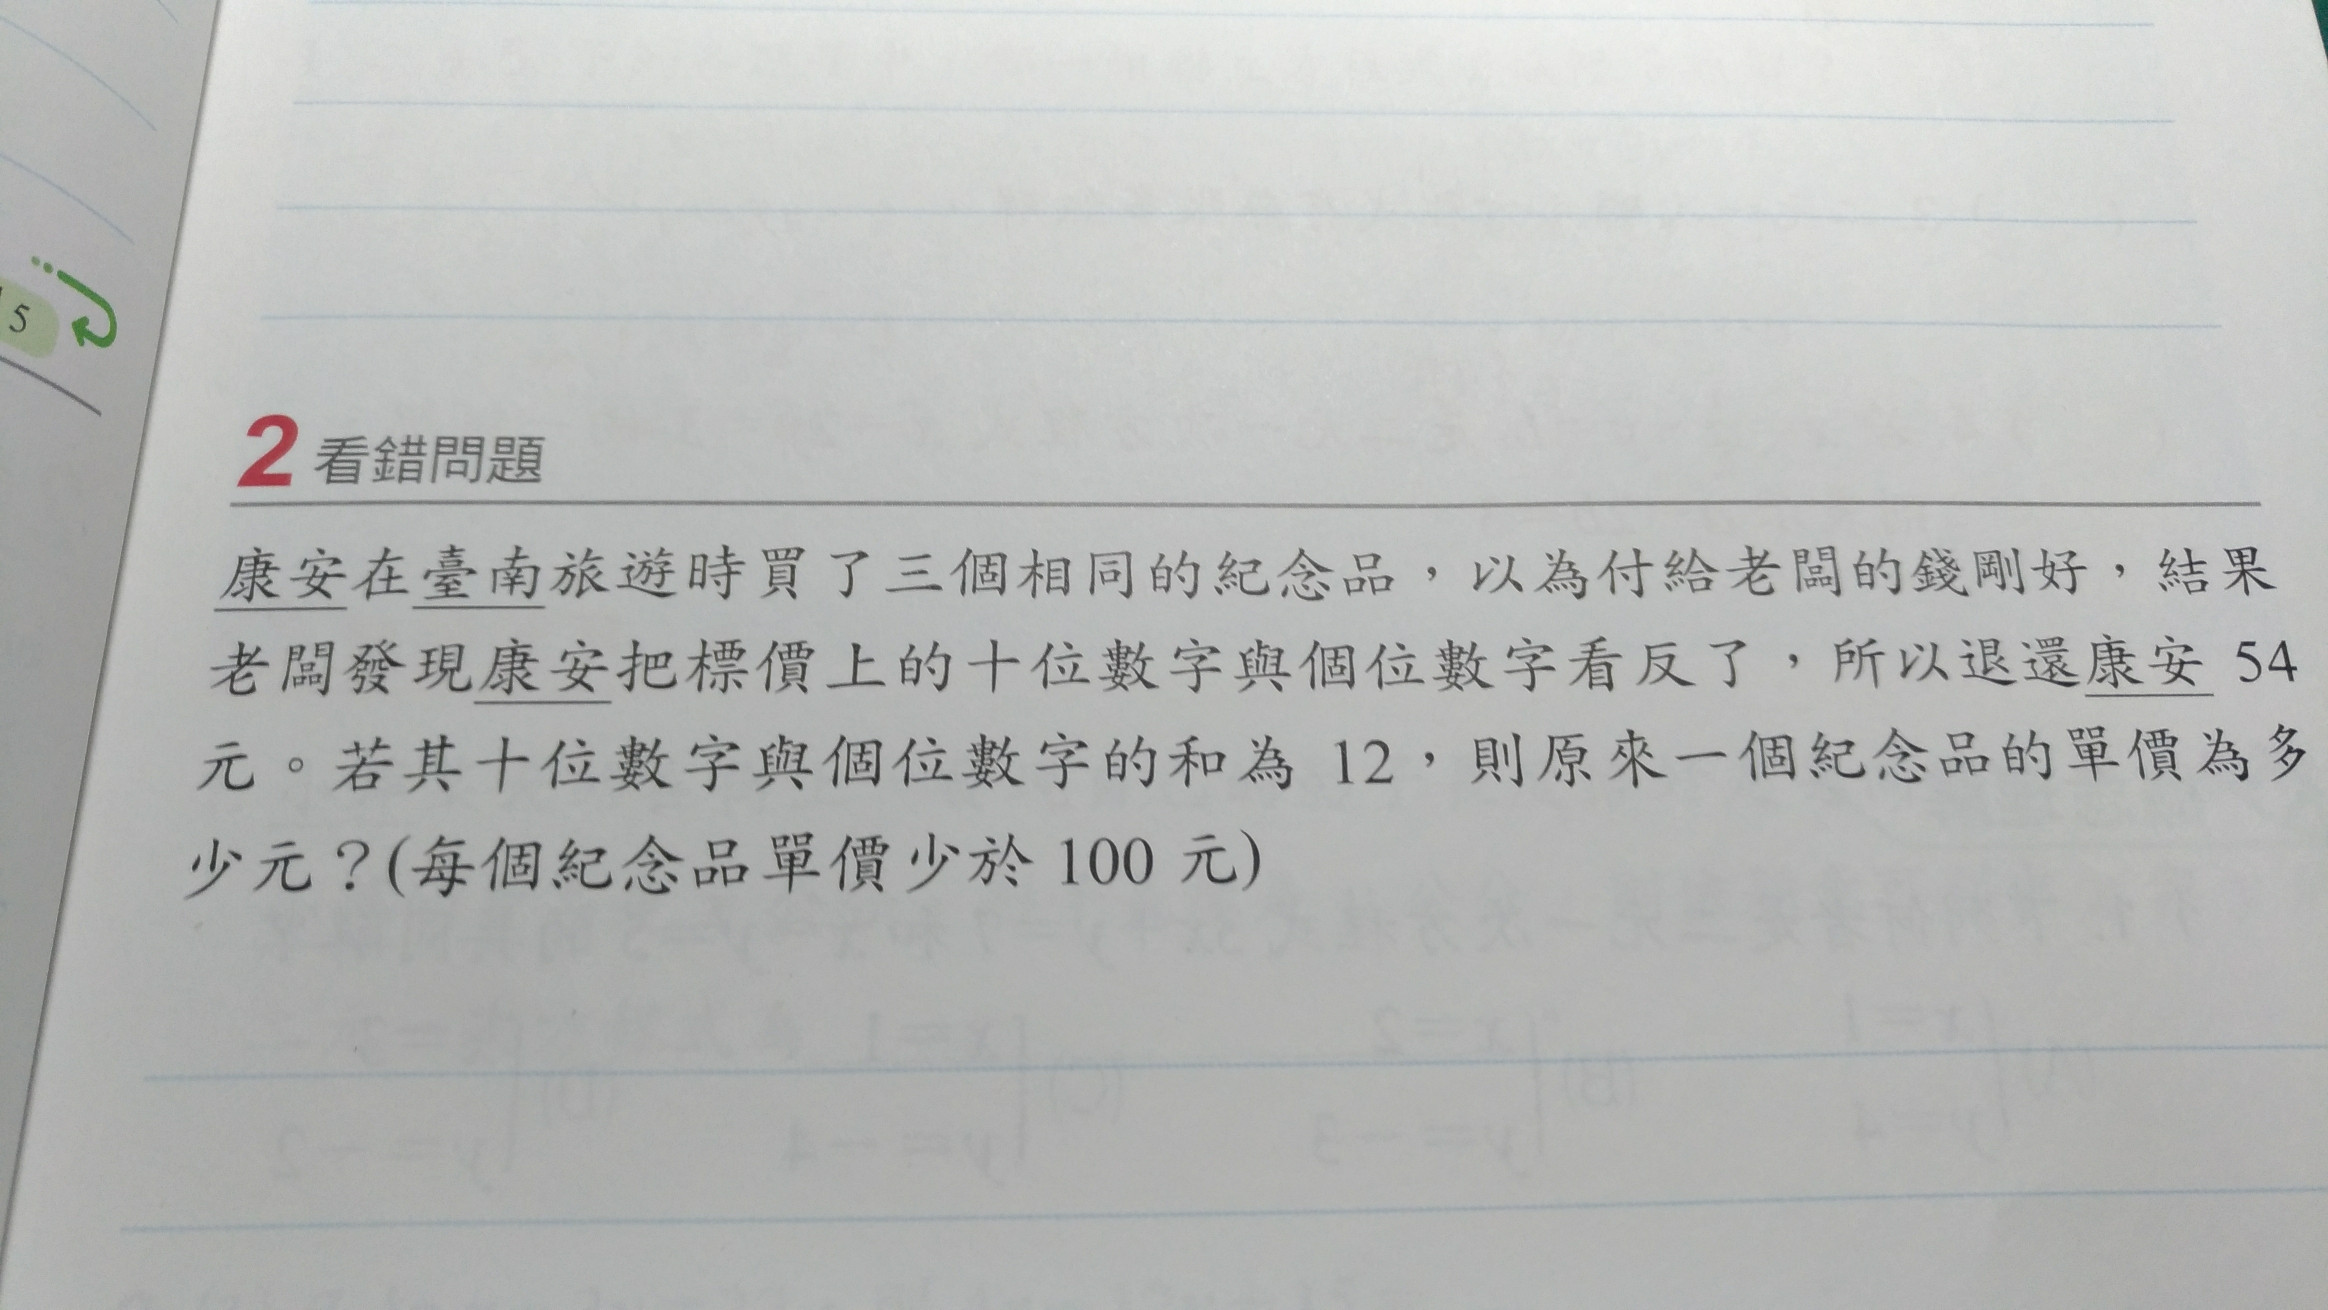 5
2 看錯問題
康安在臺南旅遊時買了三個相同的紀念品，以為付給老闆的錢剛好，結果
老闆發現康安把標價上的十位數字與個位數字看反了，所以退還康安 54
元。若其十位數字與個位數字的和為 12，則原來一個紀念品的單價為多
少元？(每個紀念品單價少於 100 元)